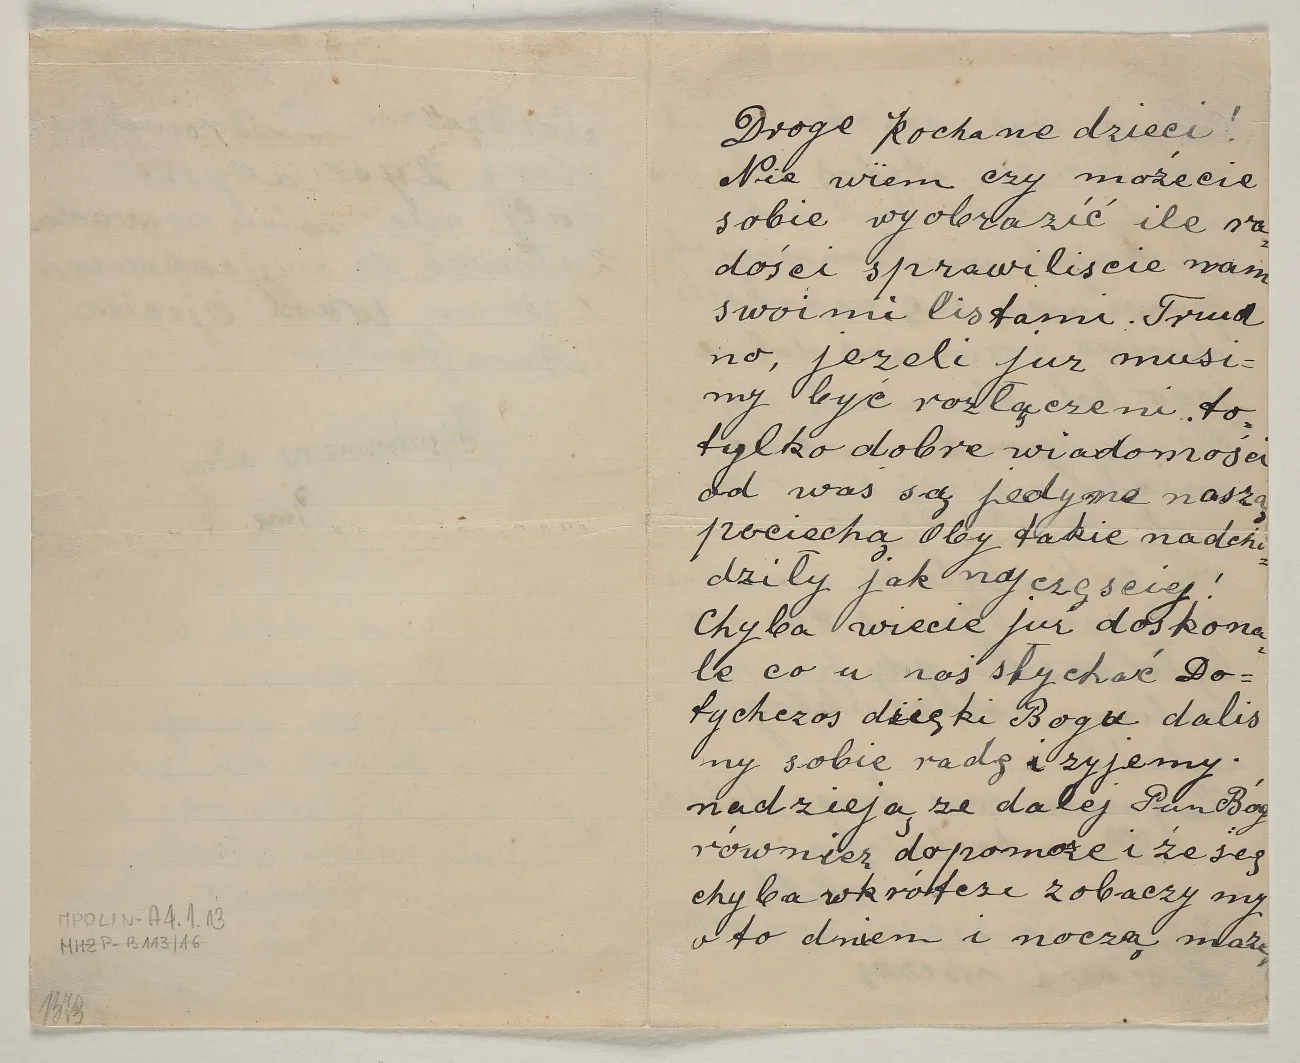 Droge kochane dzieci!
Nie wiem czy możecie
sobie wyobrazić ile ra=
dości sprawiliscie nam
swoimi listami. Trud
no, jezeli juz musi=
my być rozłączeni. to=
tylko dobre wiadomości
od was są jedyne naszą
pociechą Oby takie nadcho=
dziły jak najczęściej!
Chyba wiecie już doskona=
le co u nas słychać Do=
tychczas dzięki Bogu dalis
my sobie radę i zyjemy.
nadzieją, ze dalej Pan Bóg
również dopomoze i że się
chyba wkrótcze zobaczymy
o to dniem i noczą maże,
MPOLIN-A4.1.13
MHŻP-B113/16
1373